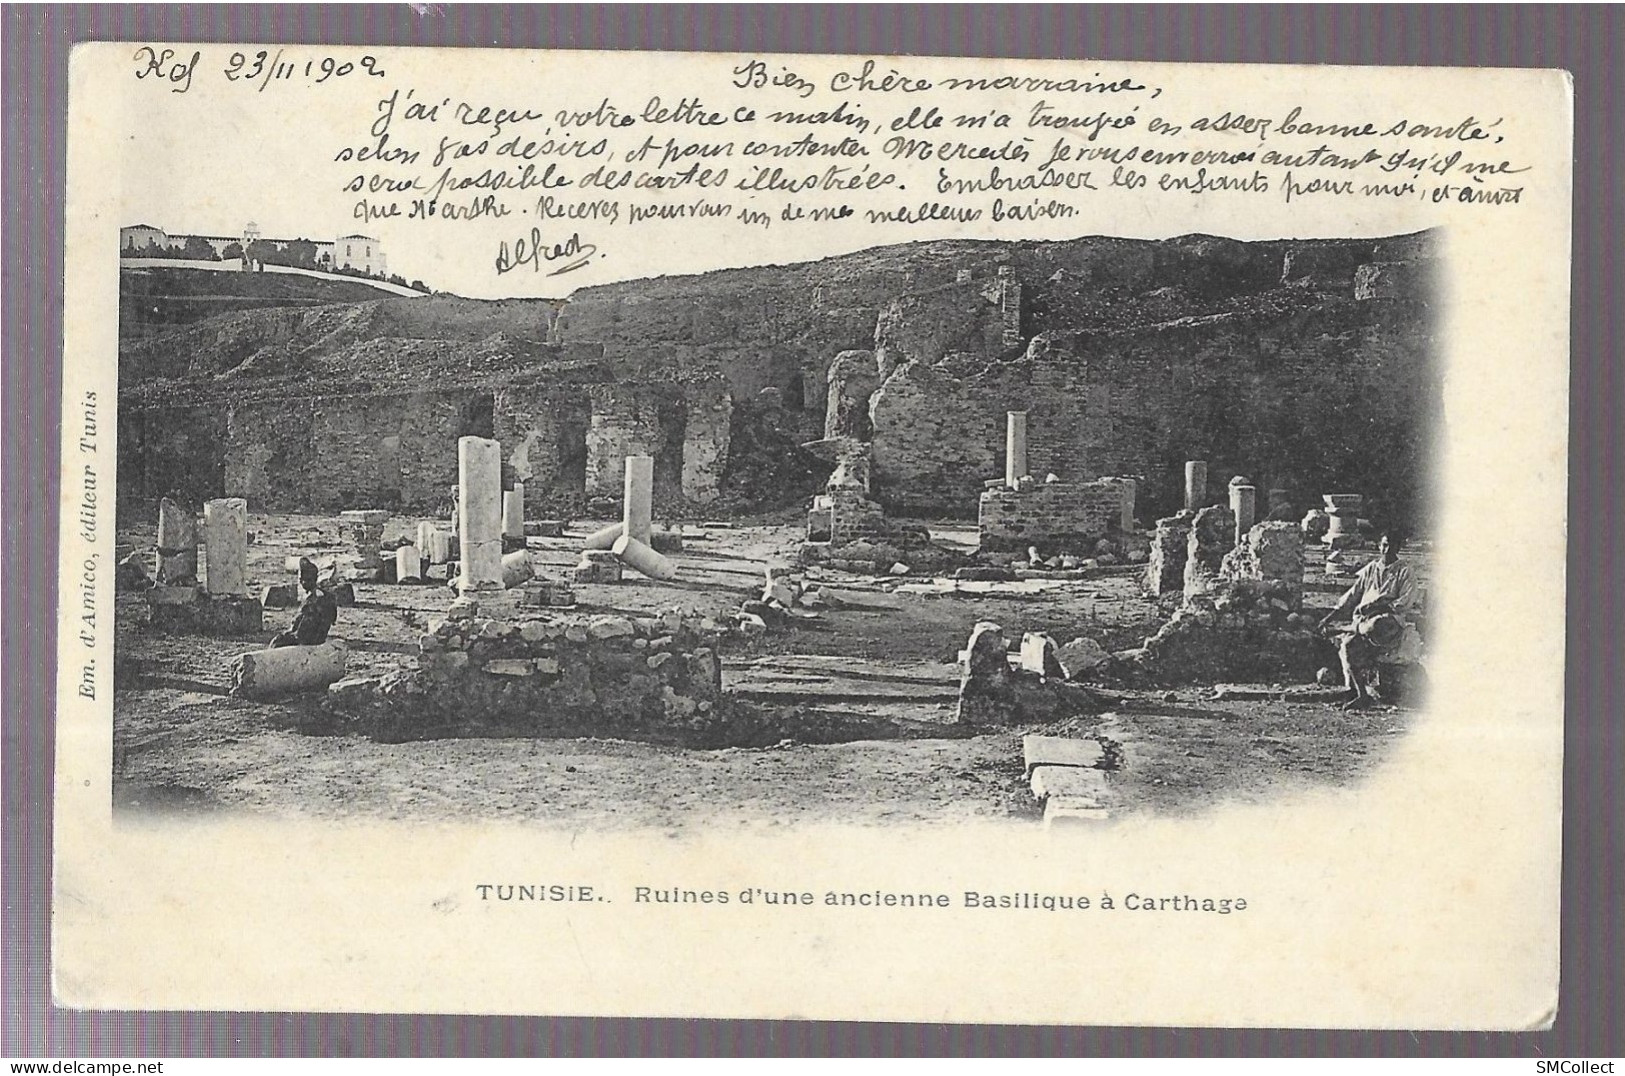 Kef 23/11 1902
Bien chère marraine,
J'ai reçu votre lettre ce matin, elle m'a trouvé en assez bonne santé,
selon vos désirs, et pour contenter Mercedès je vous enverrai autant qu'il me
sera possible des cartes illustrées. Embrassez les enfants pour moi, et
que Marthe. Recevez pour vous un de mes meilleurs baisers.
Alfred.
Em. d'Amico, éditeur Tunis
TUNISIE. Ruines d'une ancienne Basilique à Carthage
delcampe.net
SMCollect